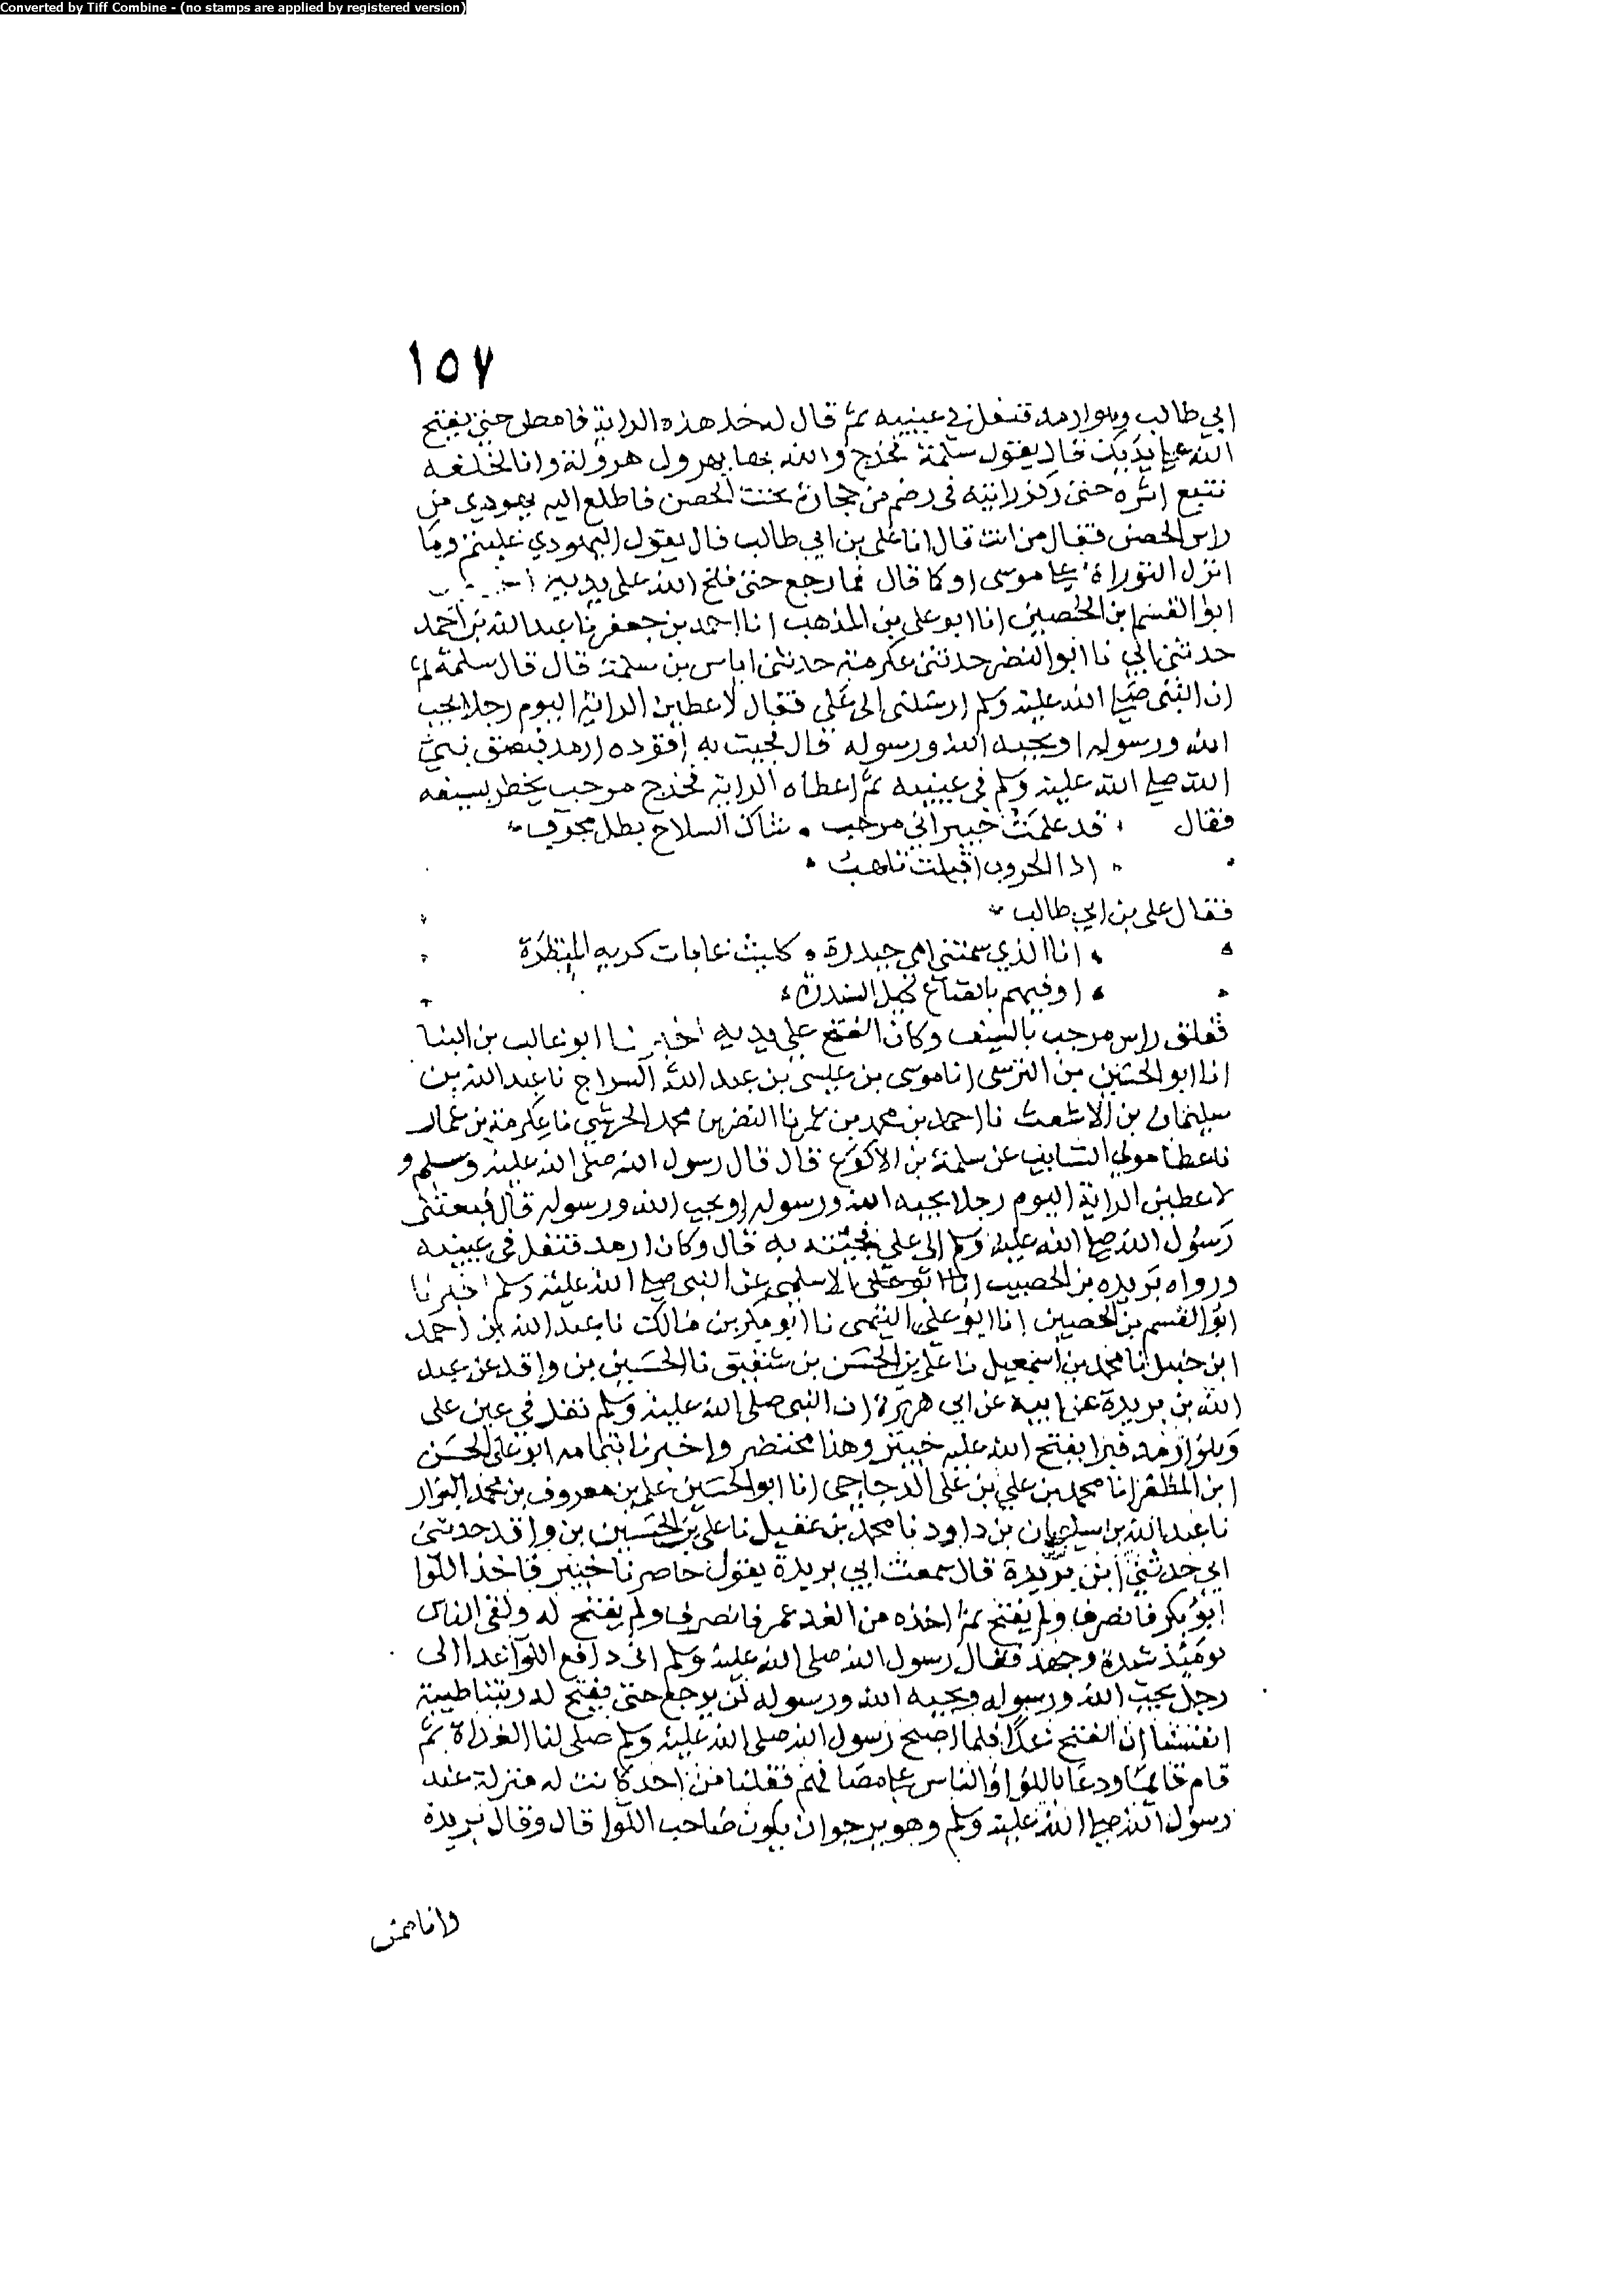 Converted by Tiff Combine - (no stamps are applied by registered version)
١٥٧
ابي طالب وهوارمد فتفل في عينيه ثم قال له خذ هذه الراية فامض حتى يفتح
الله على يديك قال يقول سلمة فخرج والله بها يهرول هرولة وانا لخلفه
نتبع اثره حتى ركز رايته في رضم من حجارة تحت الحصن فاطلع اليه يهودي من
راس الحصن فقال من انت قال انا على بن ابي طالب قال يقول اليهودي غلبتم وما
انزل التوراة على موسى اوكا قال فما رجع حتى فتح الله على يديه
ابوا القسم ابن الحصين انا ابو على بن المذهب انا احمد بن جعفر نا عبد الله بن احمد
حدثني ابي نا ابو النضر حدثني عكرمة حدثنى اياس بن سلمة قال قال سلمة ثم
ان النبى صلى الله عليه وسلم ارسلنى الى على فقال لاعطين الراية اليوم رجلا يحب
الله ورسوله او يحبه الله ورسوله قال فجيت به اقوده ارمد فبصق نبي
الله صلى الله عليه وسلم في عينيه ثم اعطاه الراية فخرج مرحب يخطر بسيفه
فقال قد علمت خيبر اني مرحب شاك السلاح بطل مجرب
اذا الحروب اقبلت تلهب
فقال على بن ابي طالب
انا الذي سمتني امي حيدرة كليث غابات كريه المنظرة
اوفيهم بالصاع كيل السندرة
ففلق راس مرحب بالسيف وكان الفتح على يديه اخبرنا ابو غالب بن البنا
انا ابو الحسين بن النرسى انا موسى بن عيسى بن عبد الله السراج نا عبد الله بن
سليمان بن الاشعث نا احمد بن محمد بن عمر نا النضر بن محمد الجرشي نا عكرمة بن عمار
نا عطا مولى السايب عن سلمة بن الاكوع قال قال رسول الله صلى الله عليه وسلم و
لاعطين الراية اليوم رجلا يحبه الله ورسوله او يحب الله ورسوله قال فبعثنى
رسول الله صلى الله عليه وسلم الى على فجئته به قال وكان ارمد فتفل في عينيه
ورواه بريده بن الحصيب الاسلمى عن النبى صلى الله عليه وسلم اخبرنا
ابو القسم بن الحصين انا ابو على التيمى نا ابو بكر بن مالك نا عبد الله بن احمد
ابن حنبل نا محمد بن اسمعيل نا على بن الحسن بن شقيق نا الحسين بن واقد عن عبد
الله بن بريدة عن ابيه عن ابي هريرة ان النبى صلى الله عليه وسلم تفل في عين على
وهو ارمد فبرا يفتح الله عليه خيبر وهذا مختصر واخبرنا بتمامه ابو على الحسن
ابن المظفر انا محمد بن علي بن على الدجاجى انا ابو الحسين على بن معروف بن محمد البزار
نا عبد الله بن سليمان بن داود نا محمد بن عقيل نا على بن الحسين بن واقد حدثنى
ابي حدثني ابن بريدة قال سمعت ابي بريدة يقول حاصرنا خيبر فاخذ اللوا
ابو بكر فانصرف ولم يفتح ثم اخذه من الغد عمر فانصرف ولم يفتح له ولقى الناس
يومئذ شدة وجهد فقال رسول الله صلى الله عليه وسلم انى دافع اللوا غدا الى
رجل يحب الله ورسوله ويحبه الله ورسوله لن يرجع حتى يفتح له وبتنا طيبة
انفسنا ان الفتح غدا فلما اصبح رسول الله صلى الله عليه وسلم صلى لنا الغداة ثم
قام قائما ودعا باللوا والناس على مصافهم فقلنا من احد كانت له منزلة عند
رسول الله صلى الله عليه وسلم وهو يرجوا ان يكون صاحب اللوا قال وقال بريدة
وانا ممن